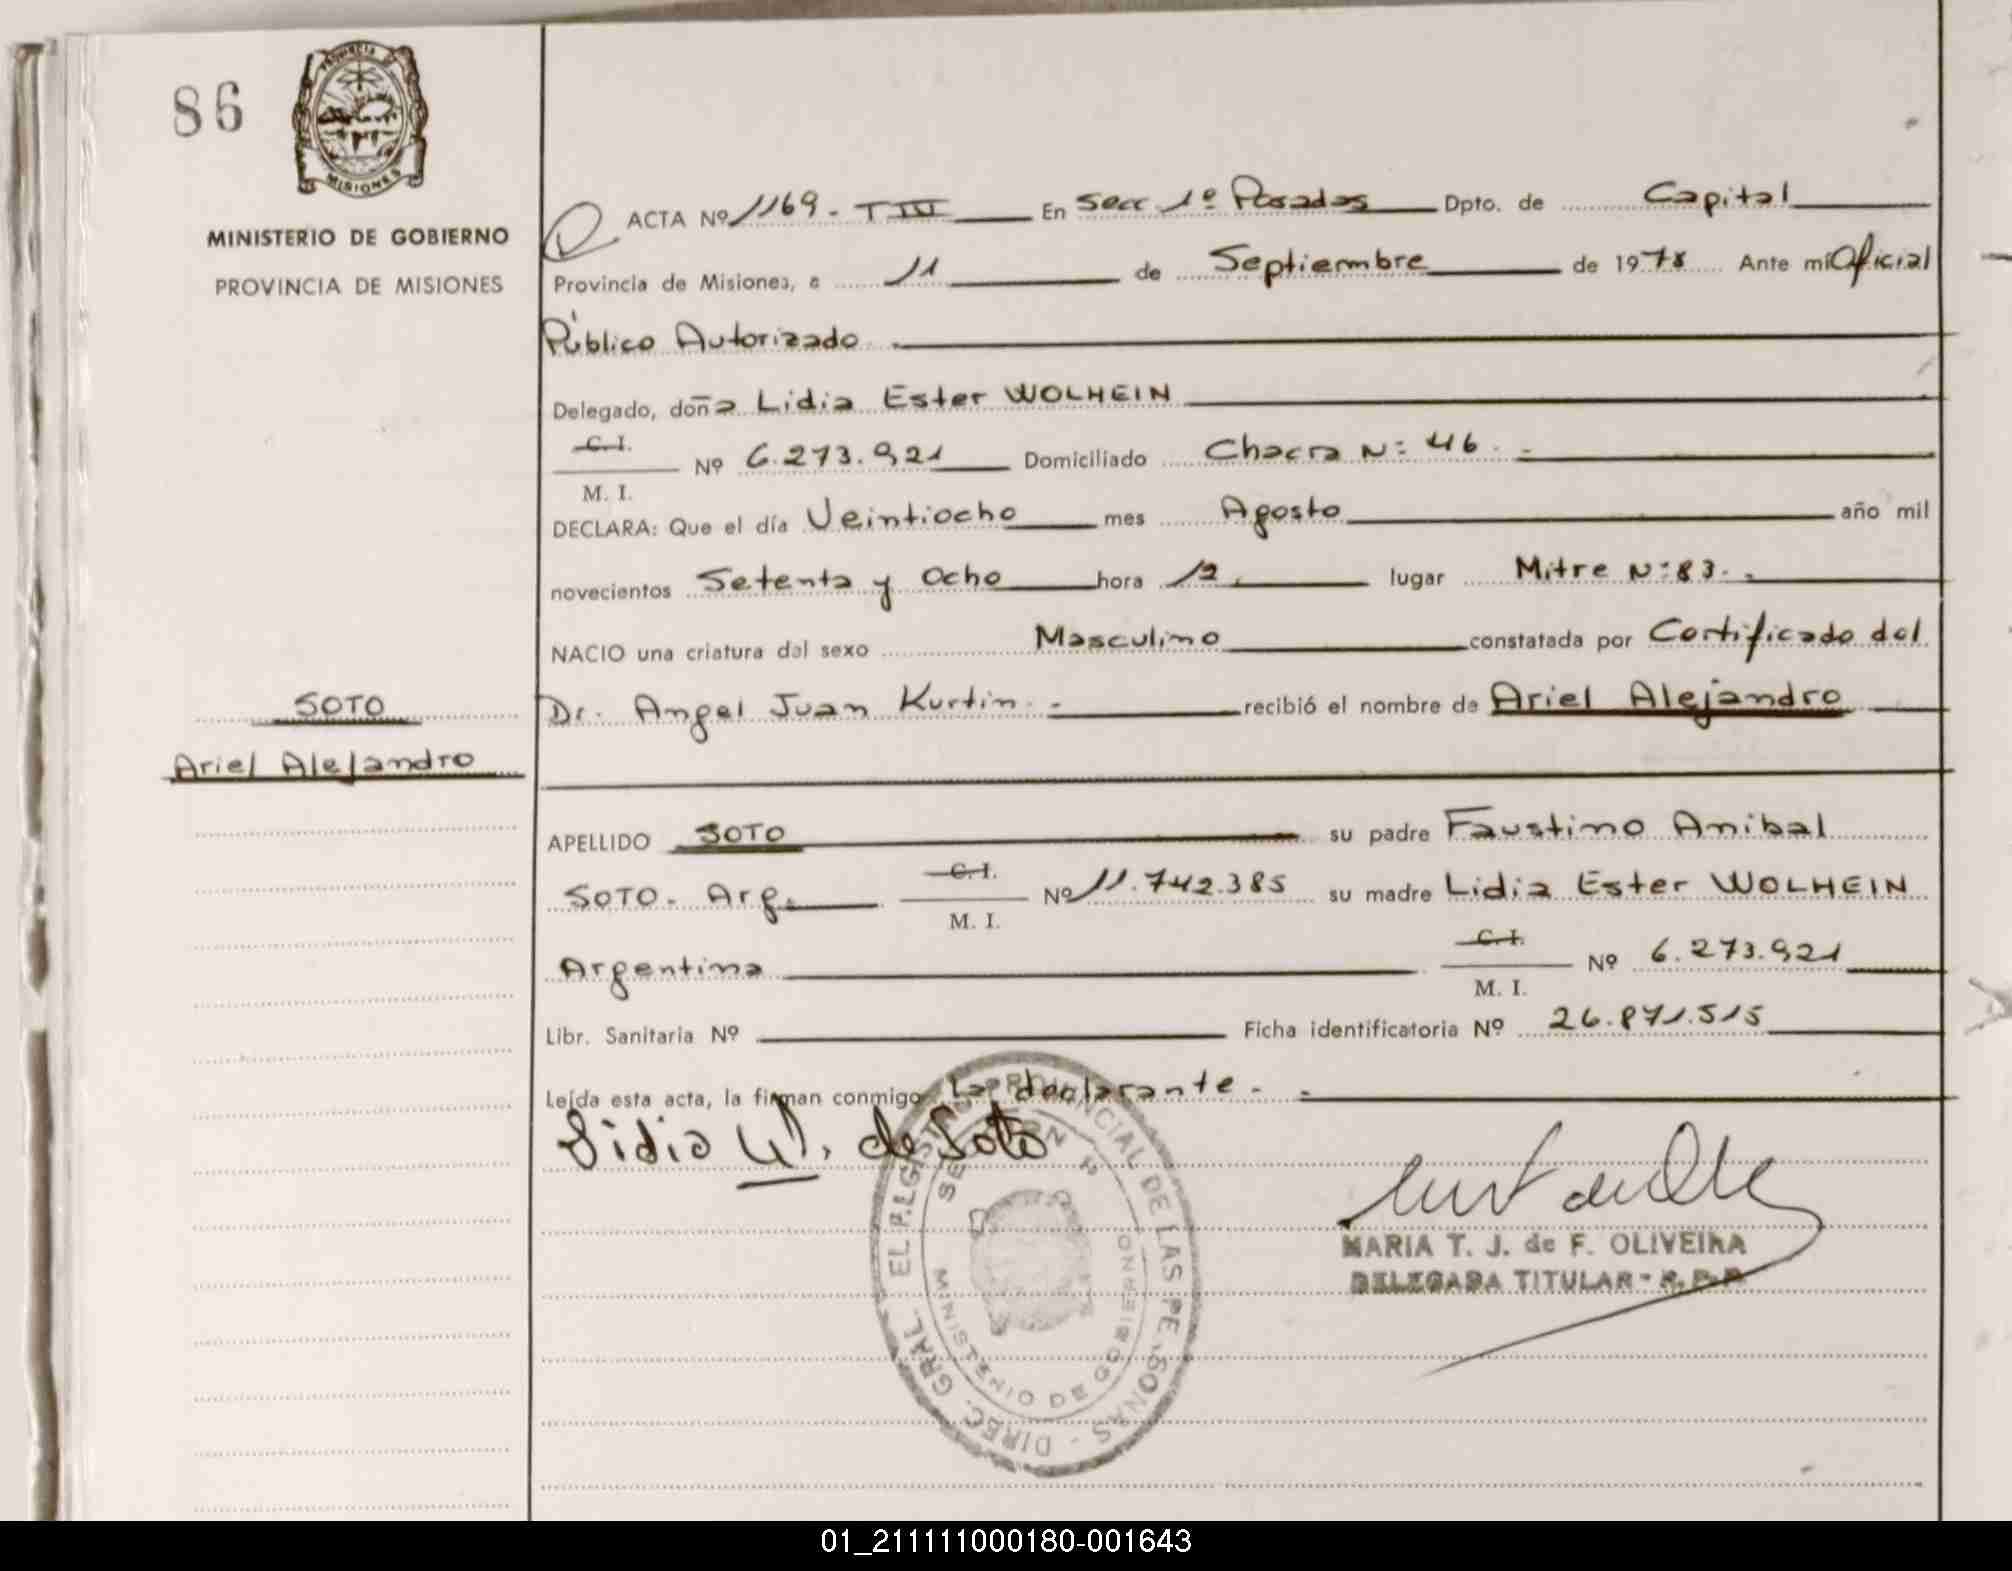 86
PROVINCIA DE
MISIONES
MINISTERIO DE GOBIERNO
PROVINCIA DE MISIONES
ACTA Nº 1169 - T III En Secc 1º Posadas Dpto. de Capital
Provincia de Misiones, a 11 de Septiembre de 1978 Ante mi Oficial
Público Autorizado
Delegado, doña Lidia Ester WOLHEIN
C. I.
Nº 6.273.921 Domiciliado Chacra Nº 46.
M. I.
DECLARA: Que el día Veintiocho mes Agosto año mil
novecientos Setenta y Ocho hora 12. lugar Mitre Nº 83.
NACIO una criatura del sexo Masculino constatada por Certificado del
Dr. Angel Juan Kurtin. - recibió el nombre de Ariel Alejandro
SOTO
Ariel Alejandro
APELLIDO SOTO su padre Faustino Anibal
C. I.
SOTO - Arg. Nº 11.742.385 su madre Lidia Ester WOLHEIN
M. I.
C. I.
Argentina Nº 6.273.921
M. I.
Libr. Sanitaria Nº Ficha identificatoria Nº 26.871.515
Leída esta acta, la firman conmigo La declarante. -
Lidia W. de Soto
DIREC. GRAL. EL REGISTRO PROVINCIAL DE LAS PERSONAS -
MINISTERIO DE GOBIERNO
MARIA T. J. de F. OLIVEIRA
DELEGADA TITULAR - R. P. P.
01_211111000180-001643